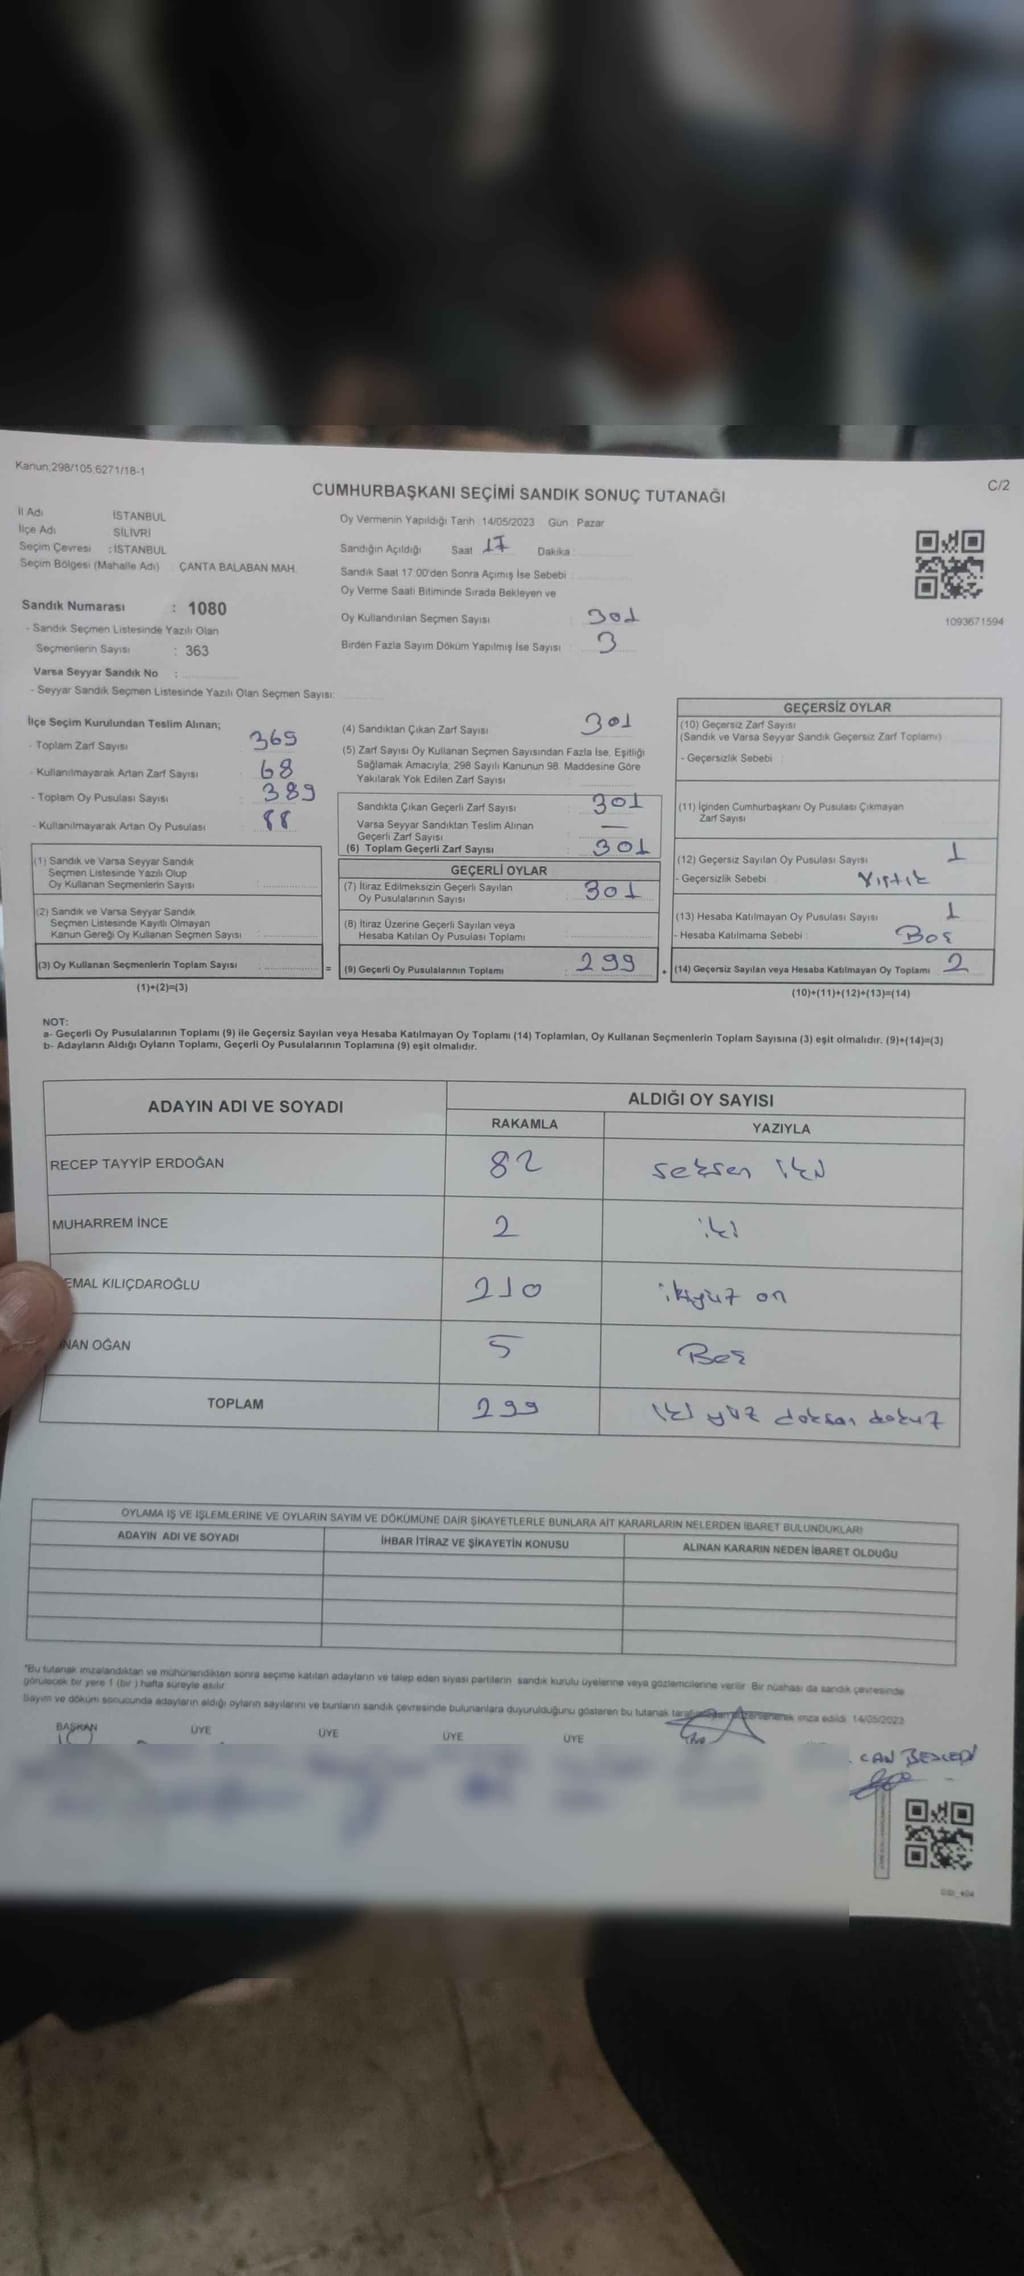 Kanun;298/105;6271/18-1
C/2
CUMHURBAŞKANI SEÇİMİ SANDIK SONUÇ TUTANAĞI
İl Adı İSTANBUL
İlçe Adı SİLİVRİ
Seçim Çevresi : İSTANBUL
Seçim Bölgesi (Mahalle Adı) ÇANTA BALABAN MAH.
Sandık Numarası : 1080
- Sandık Seçmen Listesinde Yazılı Olan
Seçmenlerin Sayısı : 363
Varsa Seyyar Sandık No :
- Seyyar Sandık Seçmen Listesinde Yazılı Olan Seçmen Sayısı:
Oy Vermenin Yapıldığı Tarih 14/05/2023 Gün Pazar
Sandığın Açıldığı Saat 17 Dakika
Sandık Saat 17:00'den Sonra Açımış İse Sebebi
Oy Verme Saati Bitiminde Sırada Bekleyen ve
Oy Kullandırılan Seçmen Sayısı 301
Birden Fazla Sayım Döküm Yapılmış İse Sayısı : 3
1093671594
İlçe Seçim Kurulundan Teslim Alınan;
- Toplam Zarf Sayısı 369
- Kullanılmayarak Artan Zarf Sayısı 68
- Toplam Oy Pusulası Sayısı 389
- Kullanılmayarak Artan Oy Pusulası 88
(1) Sandık ve Varsa Seyyar Sandık
Seçmen Listesinde Yazılı Olup
Oy Kullanan Seçmenlerin Sayısı
(2) Sandık ve Varsa Seyyar Sandık
Seçmen Listesinde Kayıtlı Olmayan
Kanun Gereği Oy Kullanan Seçmen Sayısı
(3) Oy Kullanan Seçmenlerin Toplam Sayısı
(1)+(2)=(3)
(4) Sandıktan Çıkan Zarf Sayısı 301
(5) Zarf Sayısı Oy Kullanan Seçmen Sayısından Fazla İse, Eşitliği
Sağlamak Amacıyla; 298 Sayılı Kanunun 98. Maddesine Göre
Yakılarak Yok Edilen Zarf Sayısı
Sandıkta Çıkan Geçerli Zarf Sayısı 301
Varsa Seyyar Sandıktan Teslim Alınan
Geçerli Zarf Sayısı —
(6) Toplam Geçerli Zarf Sayısı : 301
GEÇERLİ OYLAR
(7) İtiraz Edilmeksizin Geçerli Sayılan
Oy Pusulalarının Sayısı 301
(8) İtiraz Üzerine Geçerli Sayılan veya
Hesaba Katılan Oy Pusulası Toplamı
= (9) Geçerli Oy Pusulalarının Toplamı : 299
GEÇERSİZ OYLAR
(10) Geçersiz Zarf Sayısı
(Sandık ve Varsa Seyyar Sandık Geçersiz Zarf Toplamı)
- Geçersizlik Sebebi :
(11) İçinden Cumhurbaşkanı Oy Pusulası Çıkmayan
Zarf Sayısı
(12) Geçersiz Sayılan Oy Pusulası Sayısı 1
- Geçersizlik Sebebi Yırtık
(13) Hesaba Katılmayan Oy Pusulası Sayısı 1
- Hesaba Katılmama Sebebi Boş
+ (14) Geçersiz Sayılan veya Hesaba Katılmayan Oy Toplamı 2
(10)+(11)+(12)+(13)=(14)
NOT:
a- Geçerli Oy Pusulalarının Toplamı (9) ile Geçersiz Sayılan veya Hesaba Katılmayan Oy Toplamı (14) Toplamları, Oy Kullanan Seçmenlerin Toplam Sayısına (3) eşit olmalıdır. (9)+(14)=(3)
b- Adayların Aldığı Oyların Toplamı, Geçerli Oy Pusulalarının Toplamına (9) eşit olmalıdır.
ADAYIN ADI VE SOYADI
ALDIĞI OY SAYISI
RAKAMLA YAZIYLA
RECEP TAYYİP ERDOĞAN 82 seksen iki
MUHARREM İNCE 2 iki
EMAL KILIÇDAROĞLU 210 ikiyüz on
NAN OĞAN 5 Beş
TOPLAM 299 iki yüz doksan dokuz
OYLAMA İŞ VE İŞLEMLERİNE VE OYLARIN SAYIM VE DÖKÜMÜNE DAİR ŞİKAYETLERLE BUNLARA AİT KARARLARIN NELERDEN İBARET BULUNDUKLARI
ADAYIN ADI VE SOYADI İHBAR İTİRAZ VE ŞİKAYETİN KONUSU ALINAN KARARIN NEDEN İBARET OLDUĞU
*Bu tutanak imzalandıktan ve mühürlendikten sonra seçime katılan adayların ve talep eden siyasi partilerin sandık kurulu üyelerine veya gözlemcilerine verilir. Bir nüshası da sandık çevresinde
görülecek bir yere 1 (bir) hafta süreyle asılır.
Sayım ve döküm sonucunda adayların aldığı oyların sayılarını ve bunların sandık çevresinde bulunanlara duyurulduğunu gösteren bu tutanak imza edildi. 14/05/2023
BAŞKAN ÜYE ÜYE ÜYE ÜYE
CAN BESLEDİ